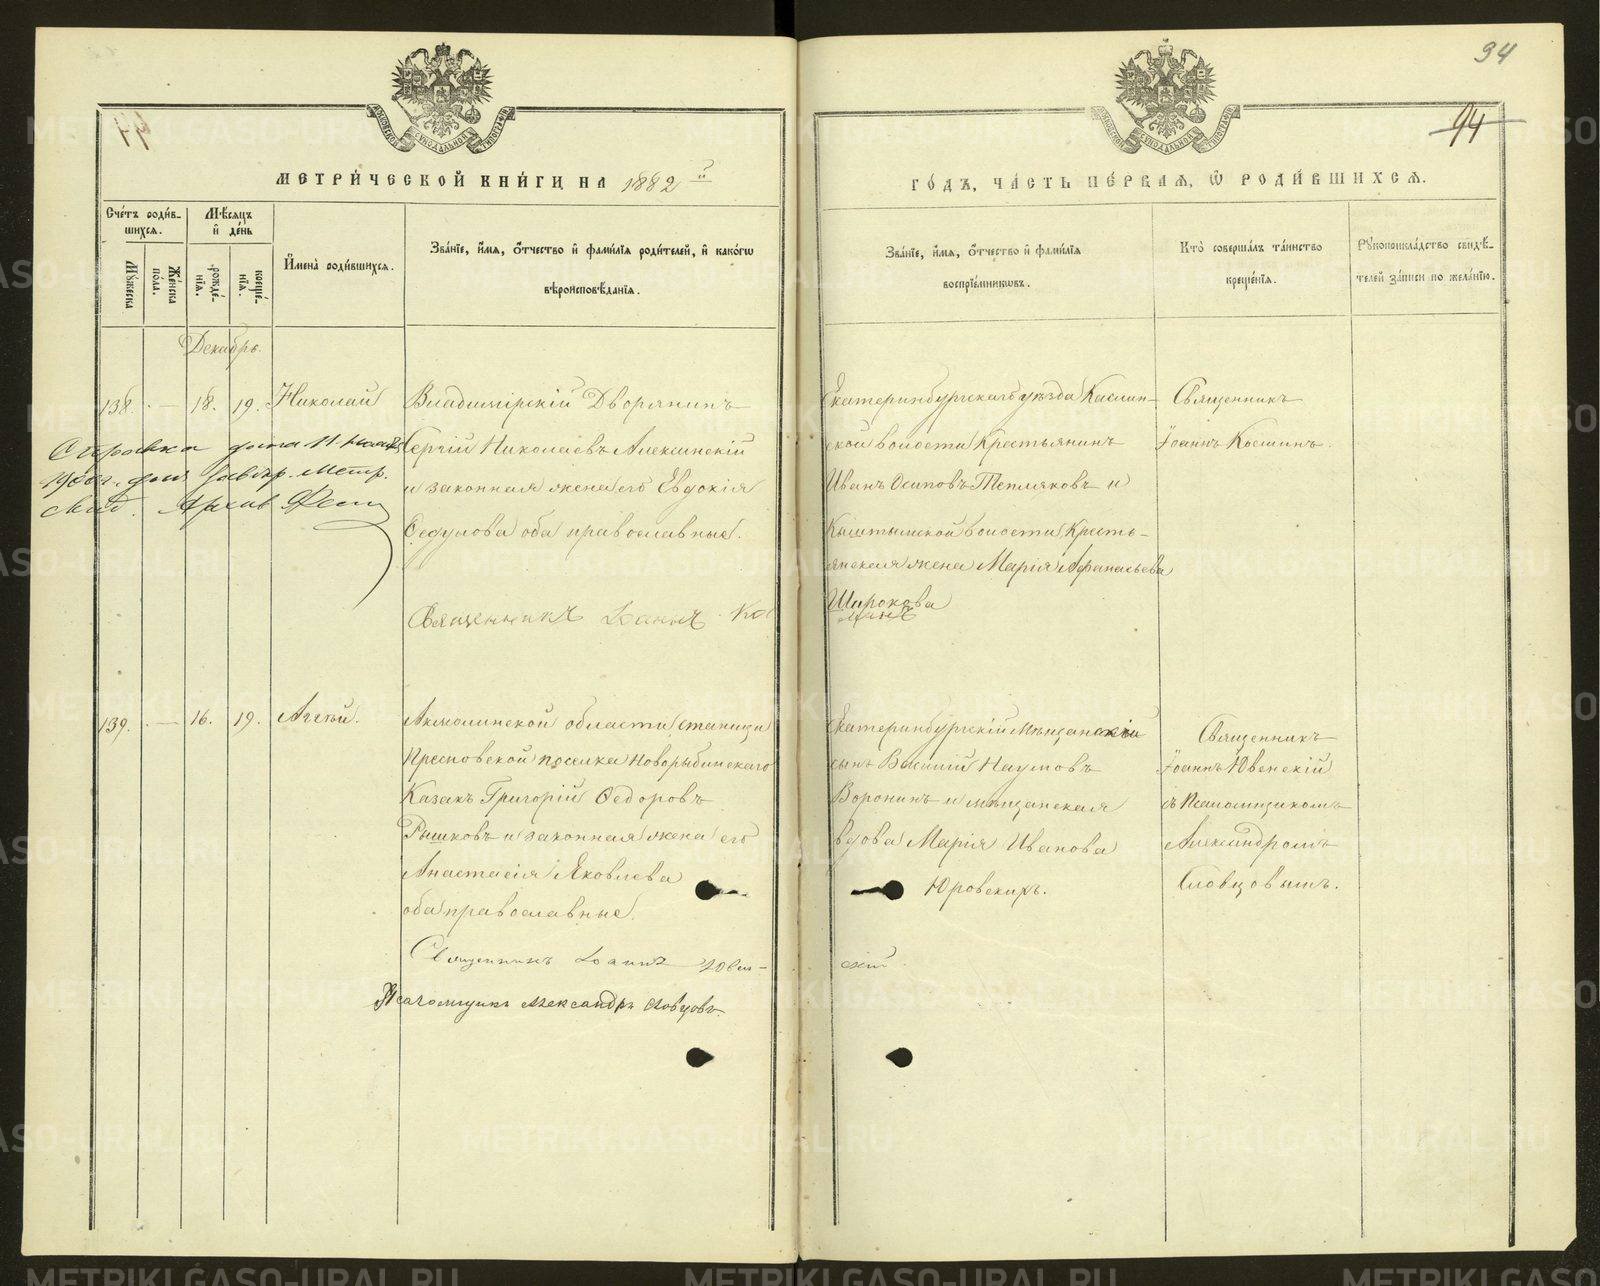 94
94
МЕТРИ́ЧЕСКОЙ КНИ́ГИ НА 1882 й
ГО́ДЪ, ЧА́СТЬ ПЕ́РВАЯ, Ѽ РОДИ́ВШИХСЯ.
Сче́тъ роди́в-
шихся.
Му́жеска
Же́нска
по́ла.
Мѣ́сяцъ
и҆ де́нь
рожде́-
нїя.
креще́-
нїя.
И҆мена̀ роди́вшихся.
Зва́нїе, и҆́мя, ѻ҆́тчество и҆ фами́лїя роди́телей, и҆ како́гѡ
вѣроисповѣ́данїя.
Зва́нїе, и҆́мя, ѻ҆́тчество и҆ фами́лїя
воспрїе́мниковъ.
Кто̀ соверша́лъ та́инство
креще́нїя.
Рꙋкоприкла́дство свидѣ́-
телей за́писи по жела́нїю.
Декабрь.
138. — 18. 19. Николай
Владимірскій Дворянинъ
Сергій Николаевъ Алексинскій
и законная жена его Евдокія
Федулова оба православные.
Священникъ Іоаннъ Ко
Екатеринбургскаго уѣзда Каслин-
ской волости Крестьянинъ
Иванъ Осиповъ Тепляковъ и
Кыштымской волости Кресть-
янская жена Марія Афанасьева
Широкова
Священникъ
Іоаннъ Косминъ.
Справка дана
139. — 16. 19. Аггей.
Акмолинской области, станицы
Пресновской поселка Новорыбинскаго
Казакъ Григорій Федоровъ
Рышковъ и законная жена его
Анастасія Яковлева
оба православные.
Священникъ Іоаннъ Ювен-
скій
Псаломщикъ Александръ Словцовъ.
Екатеринбургскій мѣщанскій
сынъ Василій Наумовъ
Воронинъ и мѣщанская
вдова Марія Иванова
Юровскихъ.
Священникъ
Іоаннъ Ювенскій
съ Псаломщикомъ
Александромъ
Словцовымъ.
METRIKI.GASO-URAL.RU